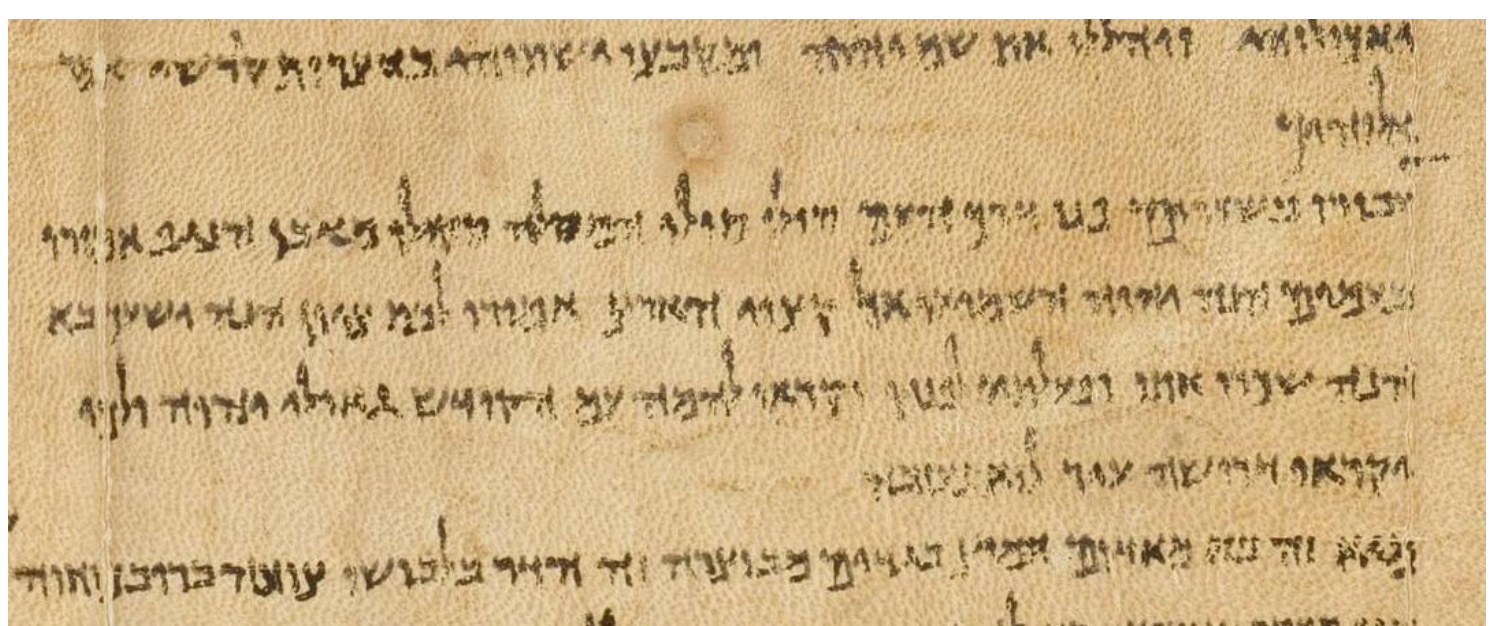 יואכלוהו והללו את שם יהוה ומקבציו ישתוהו בחצרות קדשי אמר
אלוהיך
עבורו בשערים פנו דרך העם סולו סולו המסלה מאבן הנגף אמורו
בעמים הנה יהוה השמיעו אל קצוי הארץ אמורו לבת ציון הנה ישעך בא
הנה שכרו אתו ופעלתיו לפניו וקראו להמה עם הקודש גאולי יהוה ולך
יקראו דרושה עיר לוא נעזבה
מיא זה בא מאדום חמוץ בגדים מבוצרה זה הדור בלבושו צועד ברוב